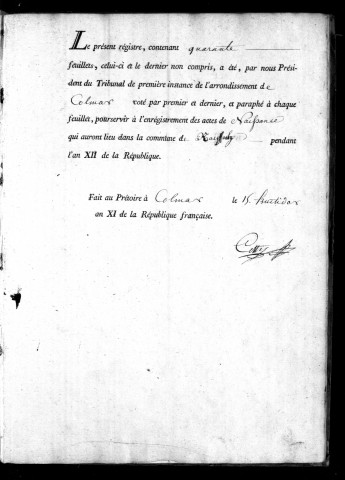 Le présent régistre, contenant quarante
feuillets, celui-ci et le dernier non compris, a été, par nous Prési-
dent du Tribunal de première instance de l'arrondissement de
Colmar coté par premier et dernier, et paraphé à chaque
feuillet, pour servir à l'enrégistrement des actes de Naissance
qui auront lieu dans la commune de pendant
l'an XII de la République.
Fait au Prétoire à Colmar le 15 fructidor
an XI de la République française.